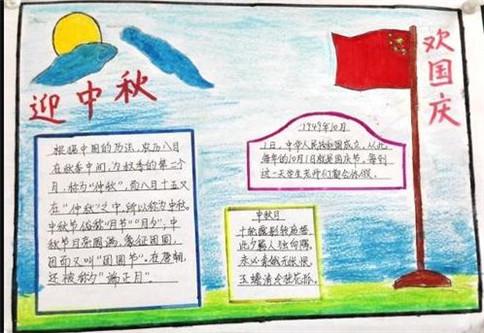 迎中秋
欢国庆
根据中国的历法,农历八月
在秋季中间,为秋季的第二个
月,称为"仲秋",而八月十五又
在"仲秋"之中,所以称为中秋。
中秋节俗称"月节""月夕",中
秋节月亮圆满,象征团圆,
因而又叫"团圆节"。在唐朝,
还被称为"端正月"。
1949年10月
1日,中华人民共和国成立,从此
每年的10月1日就是国庆节,每到
这一天学生老师们都会休假。
中秋月
十轮霜影转庭梧
此夕羁人独向隅
未必素娥无怅恨
玉蟾清冷桂花孤